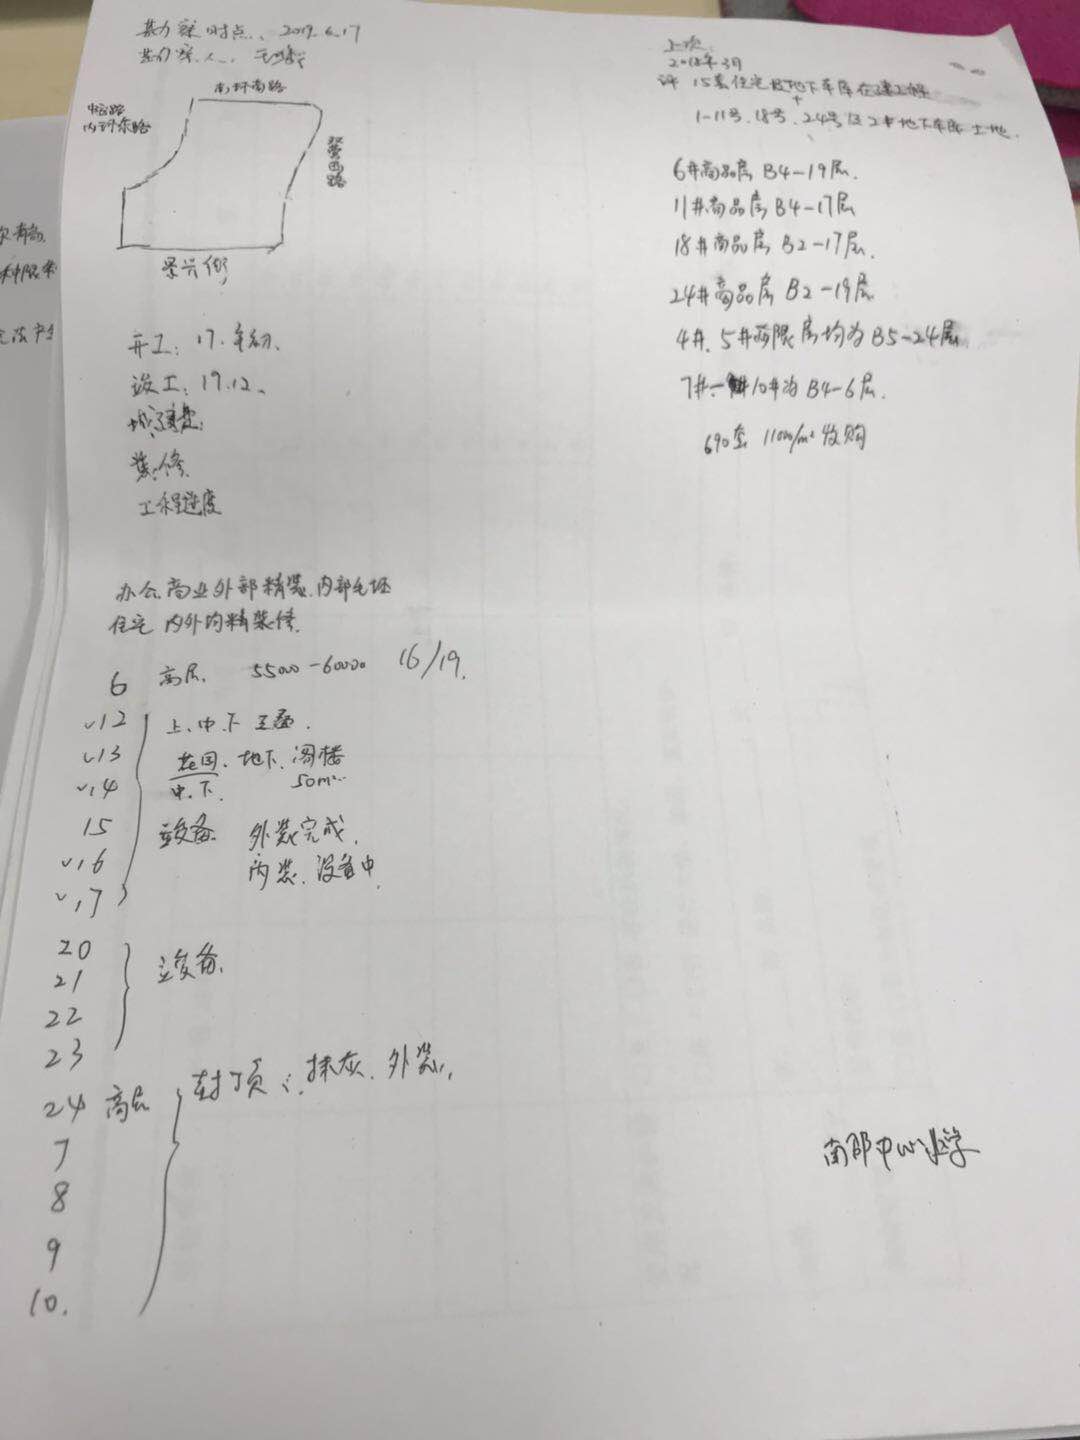 勘察时点、2019.6.17
勘察人、
南环南路
内环东路
双营西路
景兴街
开工：17.年初、
竣工：19.12、
装修
工程进度
办公商业外部精装、内部毛坯
住宅 内外均精装修、
6 高层、 55000-60000 16/19、
√12 上、中、下 三叠、
√13 花园、地下、阁楼
√14 中、下、 50m²
15 设备 外装完成、
√16 内装、设备中、
√17
20
21 设备、
22
23
24 高层 封顶、抹灰、外装、
7
8
9
10.
上次
2018年3月
评 15套住宅及地下车库在建工程
+
1-11号、18号、24号及2#地下车库土地、
6#商品房 B4-19层、
11#商品房 B4-17层
18#商品房 B2-17层、
24#商品房 B2-19层
4#、5#两限房均为B5-24层
7#-10#为B4-6层、
690套 11000/m²收购
南邵中心小学